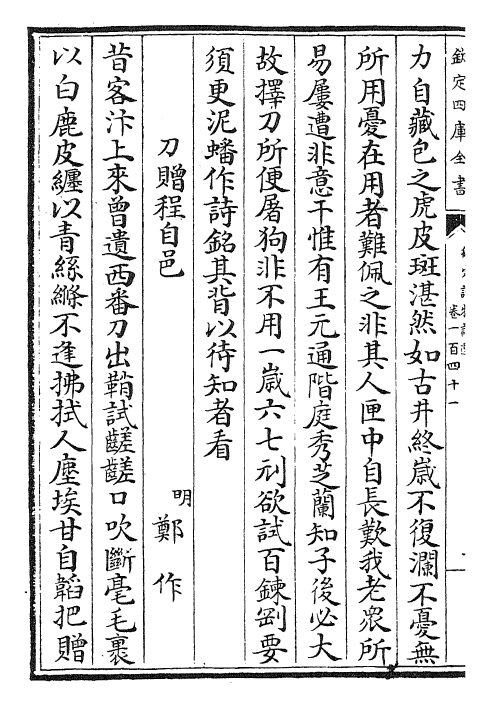 欽定四庫全書
卷一百四十一
力自藏包之虎皮斑湛然如古井終嵗不復瀾不憂無
所用憂在用者難佩之非其人匣中自長歎我老衆所
易屢遭非意干惟有王元通階庭秀芝蘭知子後必大
故擇刀所便屠狗非不用一嵗六七刓欲試百鍊剛要
須更泥蟠作詩銘其背以待知者看
刀贈程自邑
明鄭作
昔客汴上來曾遺西番刀出鞘試齹齹口吹斷毫毛裹
以白鹿皮纒以青絲絛不逢拂拭人塵埃甘自韜把贈